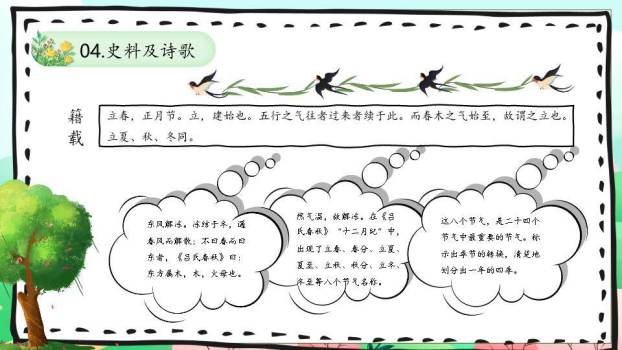 04.史料及诗歌
籍载
立春，正月节。立，建始也。五行之气往者过来者续于此。而春木之气始至，故谓之立也。
立夏、秋、冬同。
东风解冻。冻结于冬，遇
春风而解散；不曰春而曰
东者，《吕氏春秋》曰：
东方属木，木，火母也。
然气温，故解冻。在《吕
氏春秋》“十二月纪”中，
出现了立春、春分、立夏、
夏至、立秋、秋分、立冬、
冬至等八个节气名称。
这八个节气，是二十四个
节气中最重要的节气。标
示出季节的转换，清楚地
划分出一年的四季。